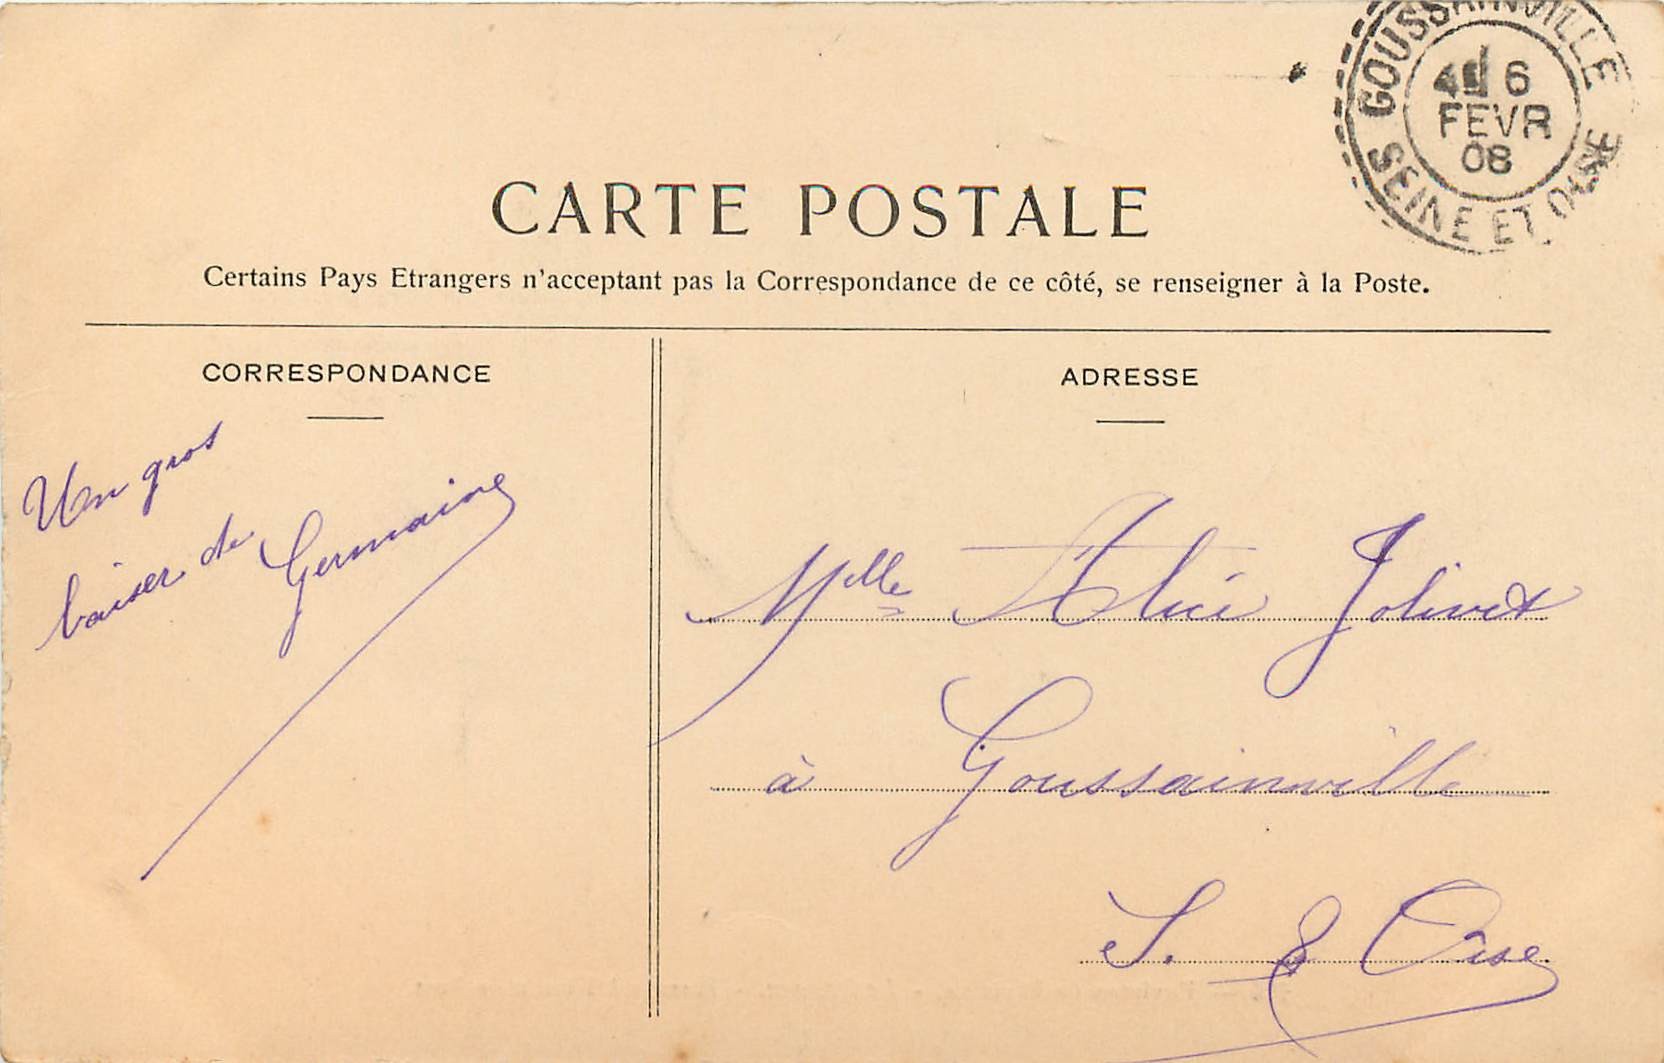 GOUSSAINVILLE
6
FEVR
08
SEINE ET OISE
CARTE POSTALE
Certains Pays Etrangers n'acceptant pas la Correspondance de ce côté, se renseigner à la Poste.
CORRESPONDANCE
Un gros
baiser de
Germaine
ADRESSE
Mlle Alice Jolivet
à Goussainville
S. & Oise